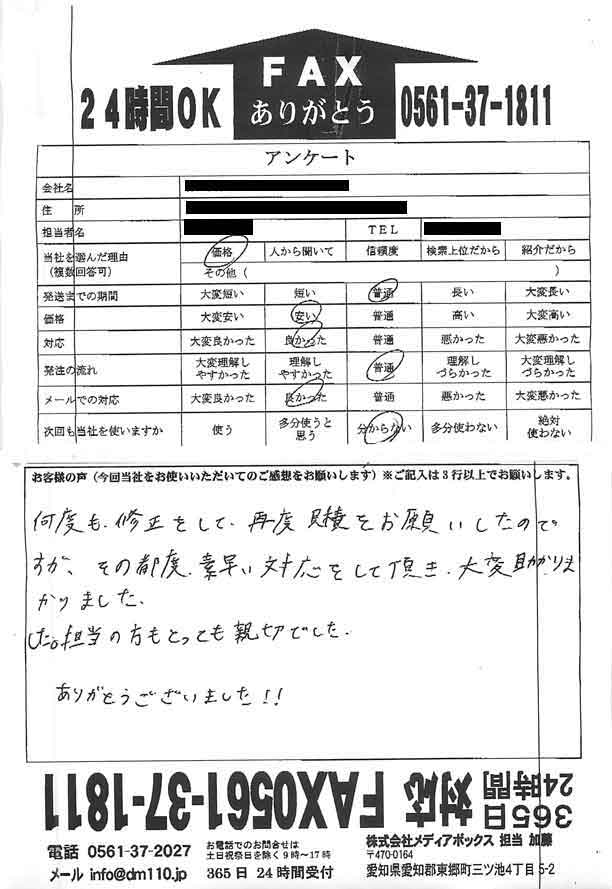 24時間OK
FAX
ありがとう
0561-37-1811
アンケート
会社名
住 所
担当者名 TEL
当社を選んだ理由 (複数回答可) 価格 人から聞いて 信頼度 検索上位だから 紹介だから
その他 ( )
発送までの期間 大変短い 短い 普通 長い 大変長い
価格 大変安い 安い 普通 高い 大変高い
対応 大変良かった 良かった 普通 悪かった 大変悪かった
発注の流れ 大変理解しやすかった 理解しやすかった 普通 理解しづらかった 大変理解しづらかった
メールでの対応 大変良かった 良かった 普通 悪かった 大変悪かった
次回も当社を使いますか 使う 多分使うと思う 分からない 多分使わない 絶対使わない
お客様の声(今回当社をお使いいただいてのご感想をお願いします)※ご記入は3行以上でお願いします。
何度も、修正をして、再度見積をお願いしたので
すが、その都度、素早い対応をして頂き、大変助かりま
かりました、
した。担当の方もとっても親切でした。
ありがとうございました!!
365日
24時間
対応 FAX0561-37-1811
電話 0561-37-2027
メール info@dm110.jp
お電話でのお問合せは
土日祝祭日を除く9時〜17時
365日 24時間受付
株式会社メディアボックス 担当 加藤
〒470-0164
愛知県愛知郡東郷町三ツ池4丁目5-2